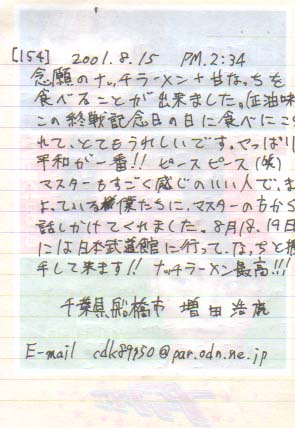 [154] 2001.8.15 PM.2:34
念願のナッチラーメン+甘なっちを
食べることが出来ました。(正油味
この終戦記念日の日に食べにこら
れて、とてもうれしいです。やっぱり
平和が一番!! ピース ピース (笑)
マスターもすごく感じのいい人で、ま
よっている僕たちに、マスターの方から
話しかけてくれました。8月18、19日
には日本武道館に行って、なっちと握
手して来ます!! ナッチラーメン最高!!!
千葉県船橋市 増田浩
E-mail cdk89950@par.odn.ne.jp